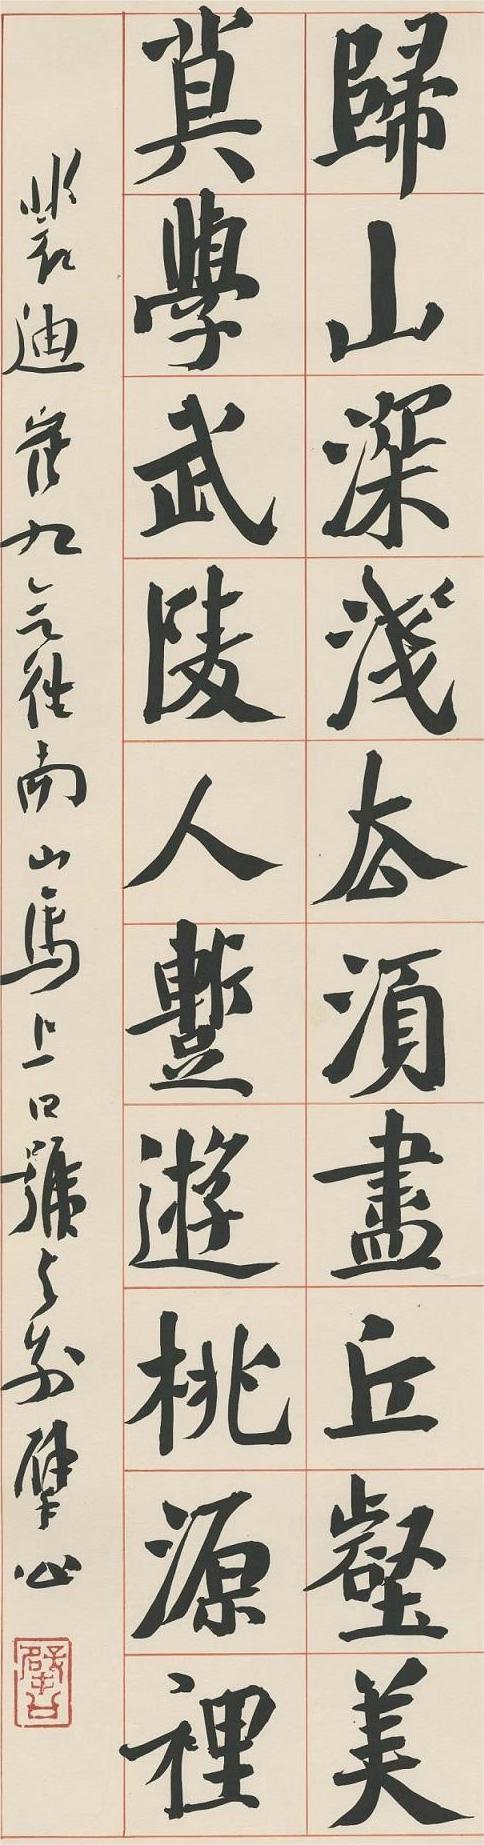 歸山深淺去須盡丘壑美
莫學武陵人暫遊桃源裡
裴迪崔九欲往南山馬上口號与別 擘公